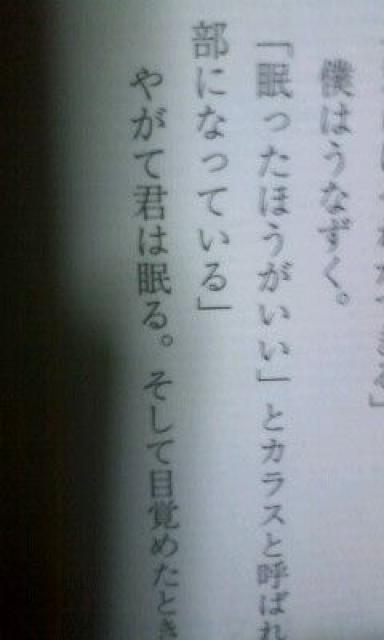 る」
僕はうなずく。
「眠ったほうがいい」とカラスと呼ばれ
部になっている」
やがて君は眠る。そして目覚めたとき